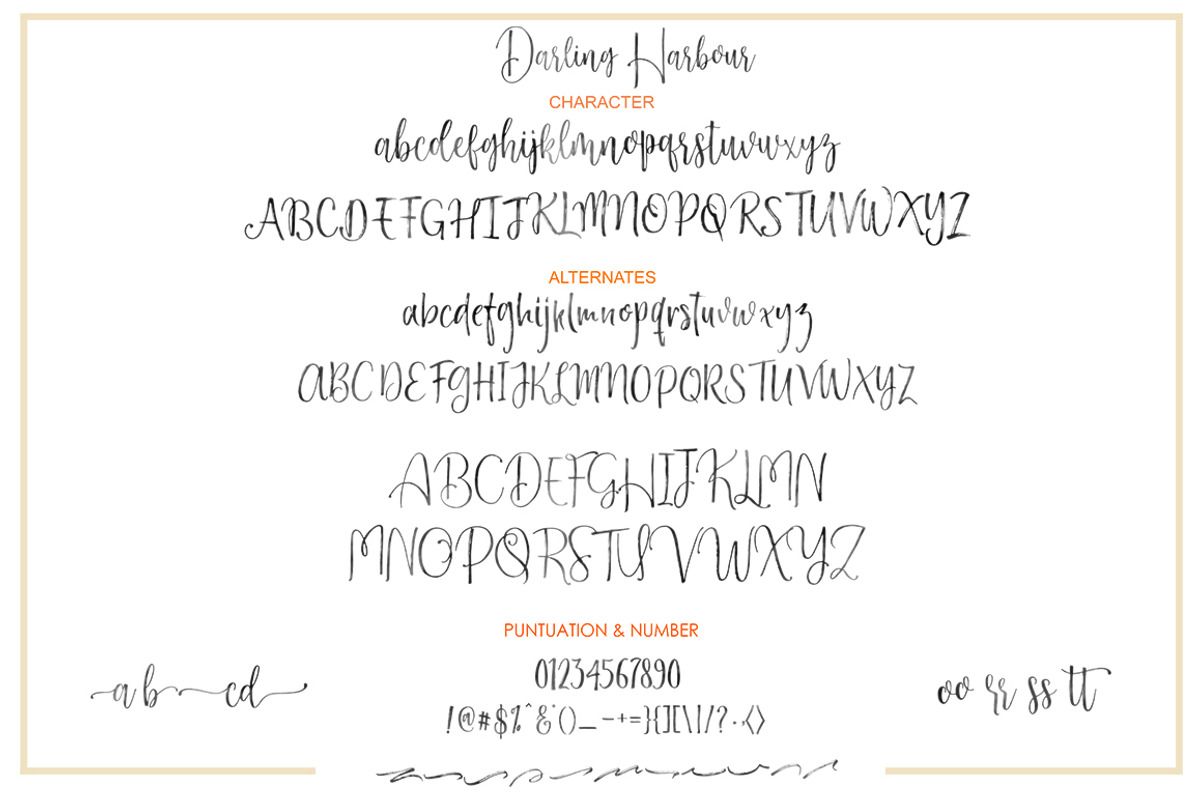 Darling Harbour
CHARACTER
abcdefghijklmnopqrstuvwxyz
ABCDEFGHIJKLMNOPQRSTUVWXYZ
ALTERNATES
abcdefghijklmnopqrstuvwxyz
ABCDEFGHIJKLMNOPQRSTUVWXYZ
ABCDEFGHIJKLMN
MNOPQRSTUVWXYZ
PUNTUATION & NUMBER
01234567890
ab cd
oo rr ss tt
!@#$%^&*()_-+=}{][\|/?.,<>